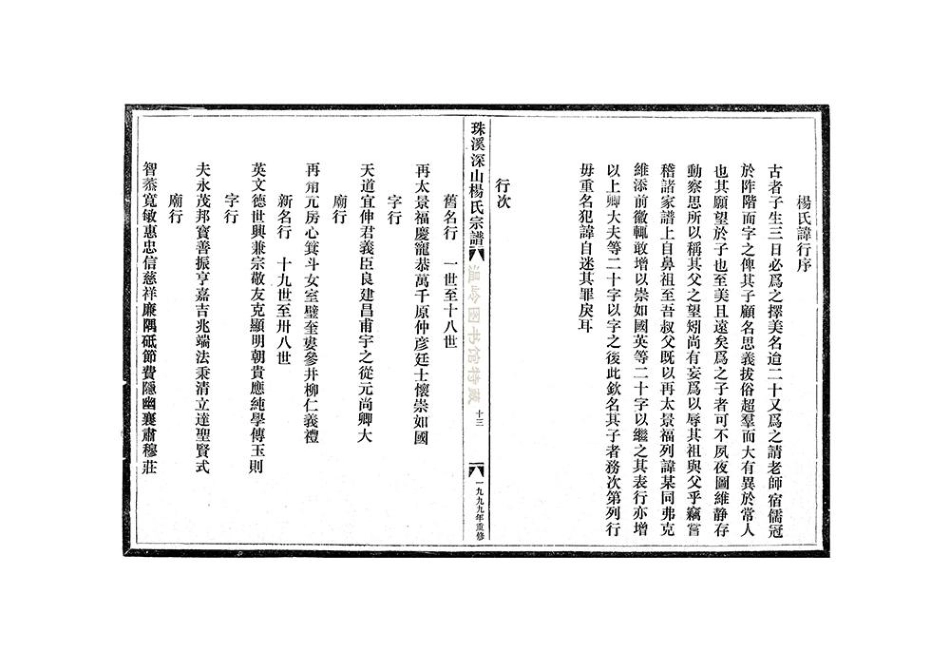 楊氏諱行序
古者子生三日必爲之擇美名迨二十又爲之請老師宿儒冠
於阼階而字之俾其子顧名思義拔俗超羣而大有異於常人
也其願望於子也至美且遠矣爲之子者可不夙夜圖維静存
動察思所以稱其父之望矧尚有妄爲以辱其祖與父乎竊嘗
稽諸家譜上自鼻祖至吾叔父既以再太景福列諱某同弗克
維添前徽輒敢增以崇如國英等二十字以繼之其表行亦增
以上卿大夫等二十字以字之後此欽名其子者務次第列行
毋重名犯諱自迷其罪戾耳
行次
珠溪深山楊氏宗譜
温岭图书馆特藏
十三
一九九九年重修
舊名行 一世至十八世
再太景福慶寵恭萬千原仲彦廷士懷崇如國
字行
天道宜伸君義臣良建昌甫宇之從元尚卿大
廟行
再 亢房心箕斗女室壁奎婁參井柳仁義禮
新名行 十九世至卅八世
英文德世興兼宗敬友克顯明朝貴應純學傳玉則
字行
夫永茂邦寶善振亨嘉吉兆端法秉清立達聖賢式
廟行
智恭寬敏惠忠信慈祥廉隅砥節費隱幽襄肅穆莊